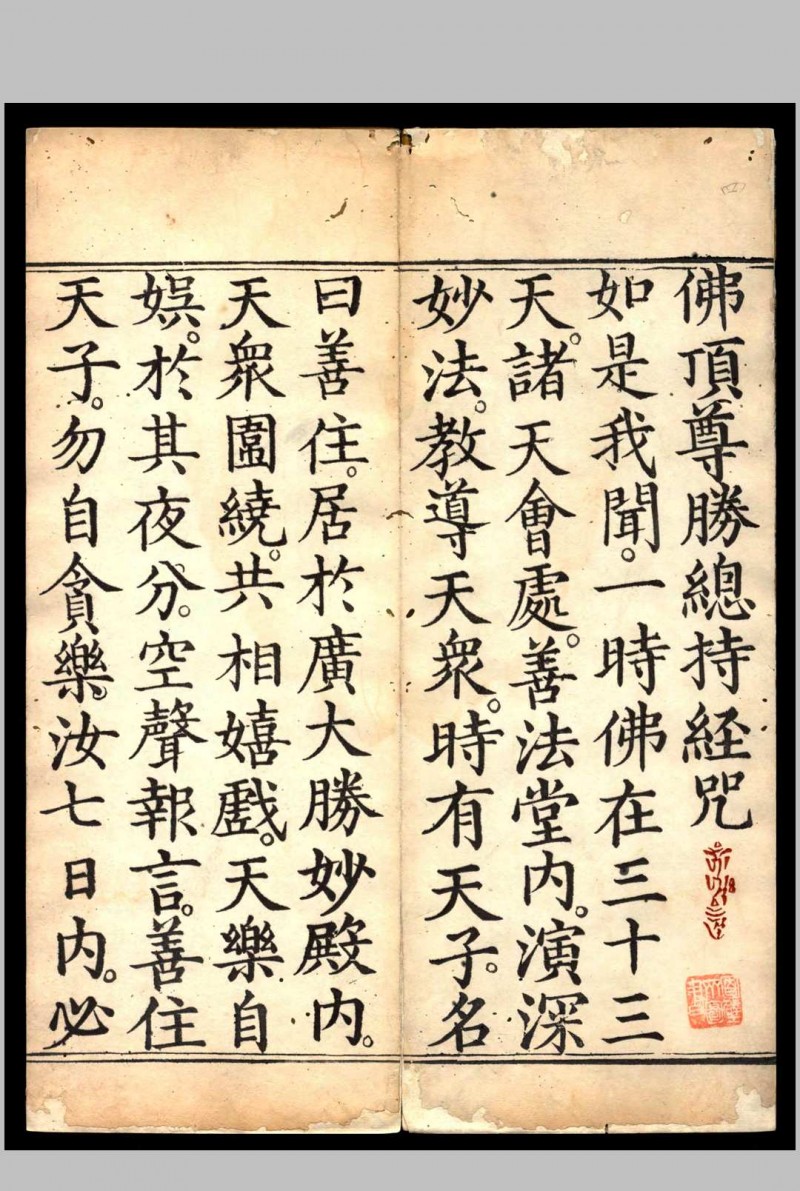 佛頂尊勝總持経咒
如是我聞。一時佛在三十三
天。諸天會處。善法堂内。演深
妙法。教導天衆。時有天子。名
曰善住。居於廣大勝妙殿内。
天衆圍繞。共相嬉戲。天樂自
娯。於其夜分。空聲報言。善住
天子。勿自貪樂。汝七日内。必